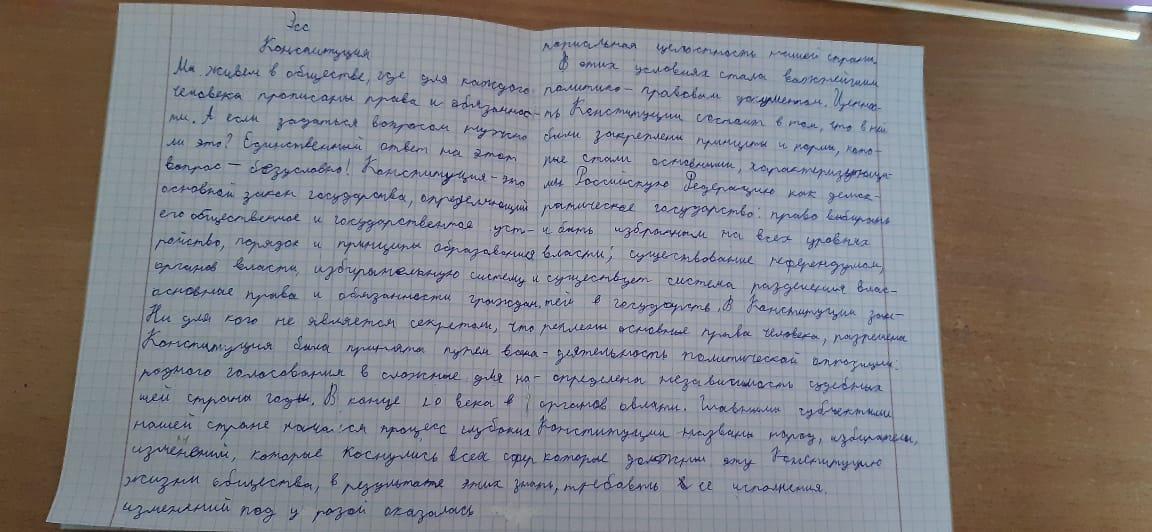 Эсс
Конституция
Мы живем в обществе, где для каждого
человека прописаны права и обязаннос-
ти. А если задаться вопросом нужно
ли это? Единственный ответ на этот
вопрос – безусловно! Конституция – это
основной закон государства, определяющий
его общественное и государственное уст-
ройство, порядок и принципы образования
органов власти, избирательную систему и
основные права и обязанности граждан.
Ни для кого не является секретом, что
Конституция была принята путем всена-
родного голосования в сложные для на-
шей страны годы. В конце 20 века в
нашей стране начался процесс глубоких
изменений, которые коснулись всех сфер
жизни общества, в результате этих
изменений под у розой оказалась
целостность нашей страны
В этих условиях стала важнейшим
политико – правовым документом. Ценнос-
ть Конституции состоит в том, что в ней
были закреплены принципы и нормы, кото-
рые стали основными, характеризующи-
ми Российскую Федерацию как демок-
ратическое государство: право выбирать
и быть избранным на всех уровнях
власти; существование референдума,
существует система разделения влас-
тей в государств, В Конституции зак-
реплены основные права человека, разрешена
деятельность политической оппозиции:
определены независимость судебных
органов власти. Главными субъектами
Конституции названы народ, избиратели,
которые должны эту Конституцию
знать, требовать её исполнения.